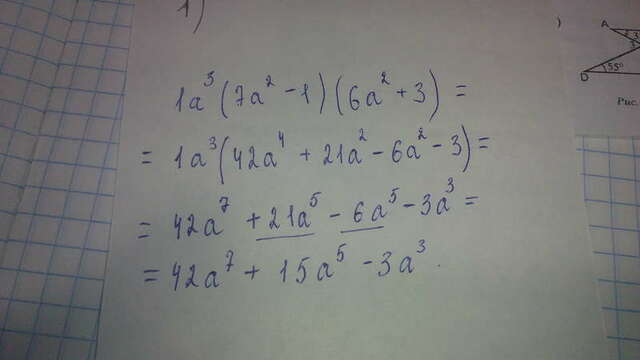 1)
1a³(7a² - 1)(6a² + 3) =
= 1a³(42a⁴ + 21a² - 6a² - 3) =
= 42a⁷ + 21a⁵ - 6a⁵ - 3a³ =
= 42a⁷ + 15a⁵ - 3a³.
)
A
3
D 55°
Рис.